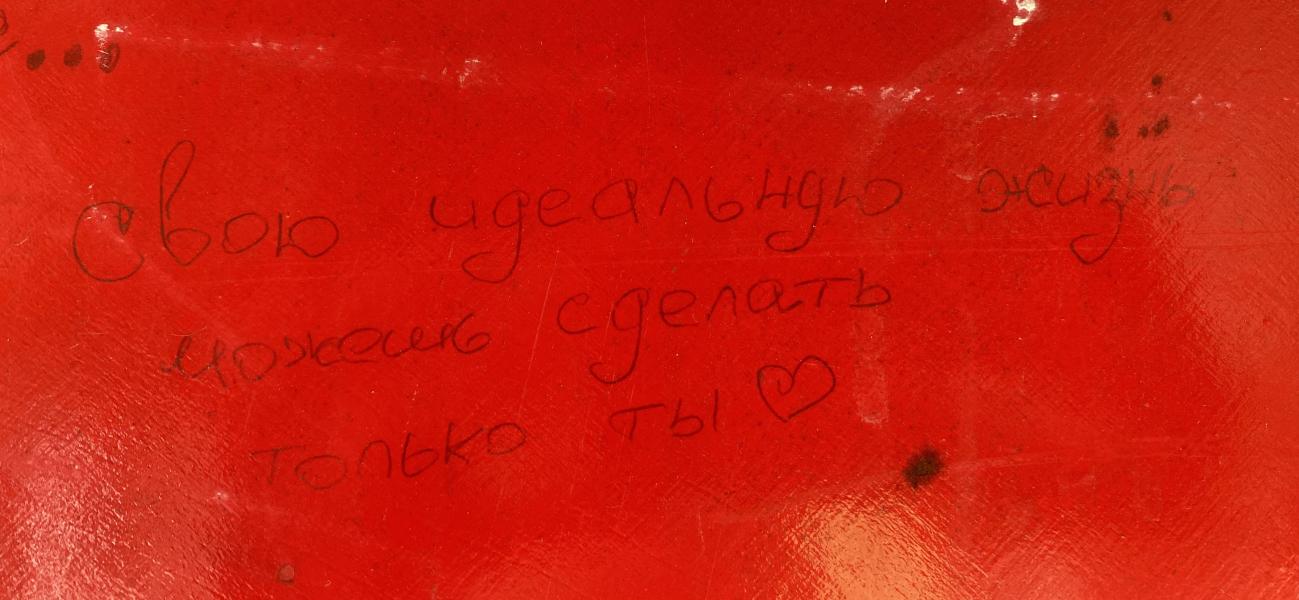 Свою идеальную жизнь
можешь сделать
только ты ♡